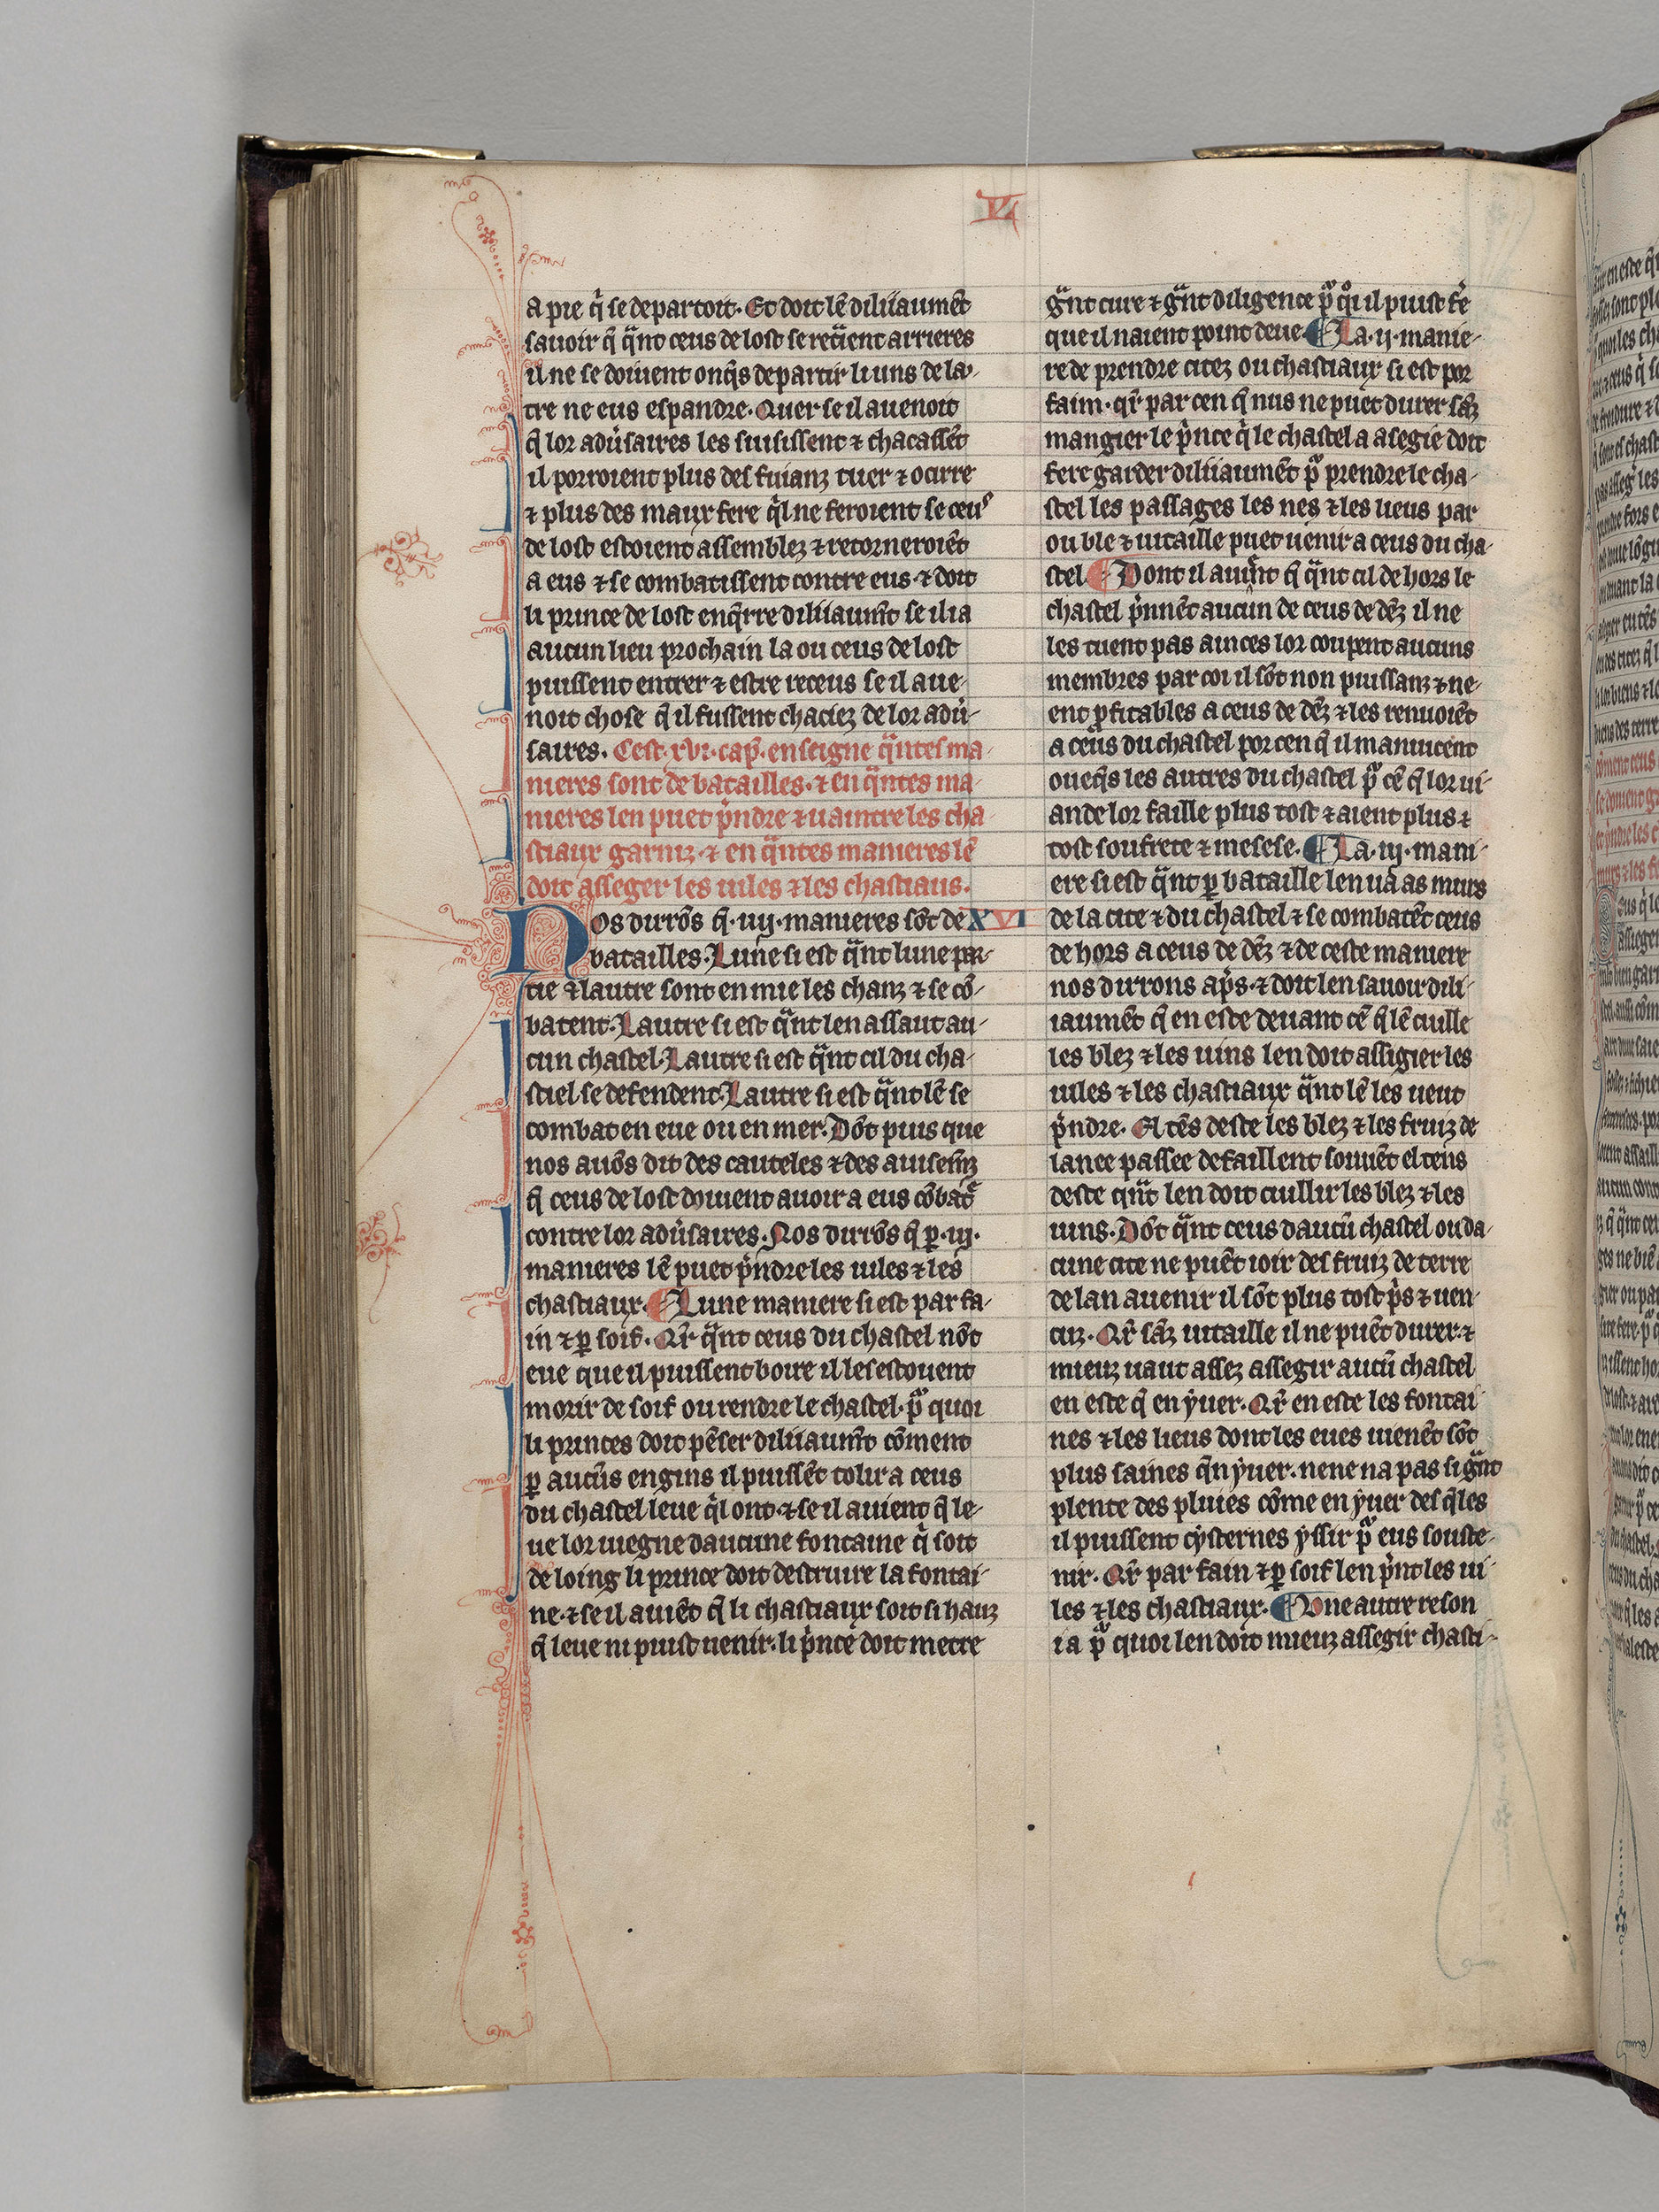 VI
apie q̇ se departoit. Et doit lē diliiaumēt
sauoir q̄ q̈nt ceus de lost se retient arrieres
il ne se doiuent onq̄s departir li uns de lau-
tre ne eus espandre. Quer se il auenoit
q̄ lor adu̾saires les suisissent ⁊ chacassēt
il porroient plus des fuianz tuer ⁊ ocirre
⁊ plus des maux fere q̇l ne feroient se ceus
de lost estoient assemblez ⁊ retorneroiēt
a eus ⁊ se combatissent contre eus. ⁊ doit
li prince de lost enq̄rre diliiaum̄t se il i a
aucun lieu prochain la ou ceus de lost
puissent entrer ⁊ estre receus se il aue-
noit chose q̄ il fussent chaciez de lor adu̾-
saires. Cest .xvi. cap̄. enseigne q̈ntes ma-
nieres sont de batailles. ⁊ en q̈ntes ma-
nieres len puet p̓ndre ⁊ uaintre les cha-
stiaux garniz. ⁊ en q̈ntes manieres lē
doit asseger les uiles ⁊ les chastiaus.
Nos dirrōs q̄ .iiij. manieres sōt de XVI
batailles. Lune si est q̈nt lune par-
tie ⁊ lautre sont en mie les chanz ⁊ se cō-
batent. Lautre si est q̈nt len assaut au-
cun chastel. Lautre si est q̈nt cil du cha-
stiel se defendent. Lautre si est q̈nt lē se
combat en eue ou en mer. Dōt puis que
nos auōs dit des cauteles ⁊ des auisem̄z
q̄ ceus de lost doiuent auoir a eus cōbatᷓ
contre lor adu̾saires. Nos dirrōs q̄ ꝑ .iij.
manieres lē puet p̓ndre les uiles ⁊ les
chastiaux. ¶ Lune maniere si est par fa-
in ⁊ ꝑ soif. Qr̄ q̈nt ceus du chastel nōt
eue que il puissent boire il les estouent
morir de soif ou rendre le chastel. pᷓ quoi
li princes doit pēser diliiaum̄t cōment
ꝑ aucūs engins il puissēt tolir a ceus
du chastel leue q̇l ont. ⁊ se il auient q̄ le-
ue lor uiegne daucune fontaine q̇ soit
de loing li prince doit destruire la fontai-
ne. ⁊ se il auiēt q̄ li chastiaux soit si hauz
q̄ leue ni puist uenir. li p̓nce doit metre
g̈nt cure ⁊ g̈nt diligence pᷓ q̊i il puist fe̓
que il naient point deue. ¶ La .ij. manie-
re de prendre citez ou chastiaux si est por
faim. qr̄ par cen q̄ nus ne puet durer sāz
mangier le p̓nce q̇ le chastel a asegie doit
fere garder diliiaumēt pᷓ prendre le cha-
stel les passages les nes ⁊ les lieus par
ou ble ⁊ uitaille puet uenir a ceus du cha-
stel. ¶ Dont il auiēnt q̄ q̈nt cil de hors le
chastel p̓nnēt aucun de ceus de dēz il ne
les tuent pas ainces lor coupent aucuns
membres par coi il sōt non puissanz ⁊ ne-
ent ꝓfitables a ceus de dēz ⁊ les renuoiēt
a ceus du chastel por cen q̄ il maniucent
oueq̄s les autres du chastel pᷓ cē q̄ lor ui-
ande lor faille plus tost ⁊ aient plus ⁊
tost soufrete ⁊ mesese. ¶ La .iij. mani-
ere si est q̈nt ꝑ bataille len ua as murs
de la cite ⁊ du chastel ⁊ se combatēt ceus
de hors a ceus de dēz ⁊ de ceste maniere
nos dirrons ap̓s. ⁊ doit len sauoir dili-
iaumēt q̄ en este deuant cē q̄ lē cuille
les blez ⁊ les uins len doit assigier les
uiles ⁊ les chastiaux q̈nt lē les ueut
p̓ndre. A tēs deste les blez ⁊ les fruiz de
lanee passee defaillent souuēt el tens
deste q̈nt len doit cuillir les blez ⁊ les
uins. Dōt q̈nt ceus daucū chastel ou da-
cune cite ne puēt ioir des fruiz de terre
de lan auenir il sōt plus tost p̓s ⁊ uen-
cuz. Qr̄ sāz uitaille il ne puēt durer. ⁊
mieuz uaut assez assegir aucū chastel
en este q̄ en yuer. Qr̄ en este les fontai-
nes ⁊ les lieus dont les eues uienēt sōt
plus saines q̄n yuer. ne ne na pas si g̈nt
plente des pluies cōme en yuer des q̄les
il puissent cysternes yssir pᷓ eus souste-
nir. Qr̄ par fain ⁊ ꝑ soif len p̓nt les ui-
les ⁊ les chastiaux. ¶ Vne autre reson
i a pᷓ quoi len doit mieuz assegir chasti-